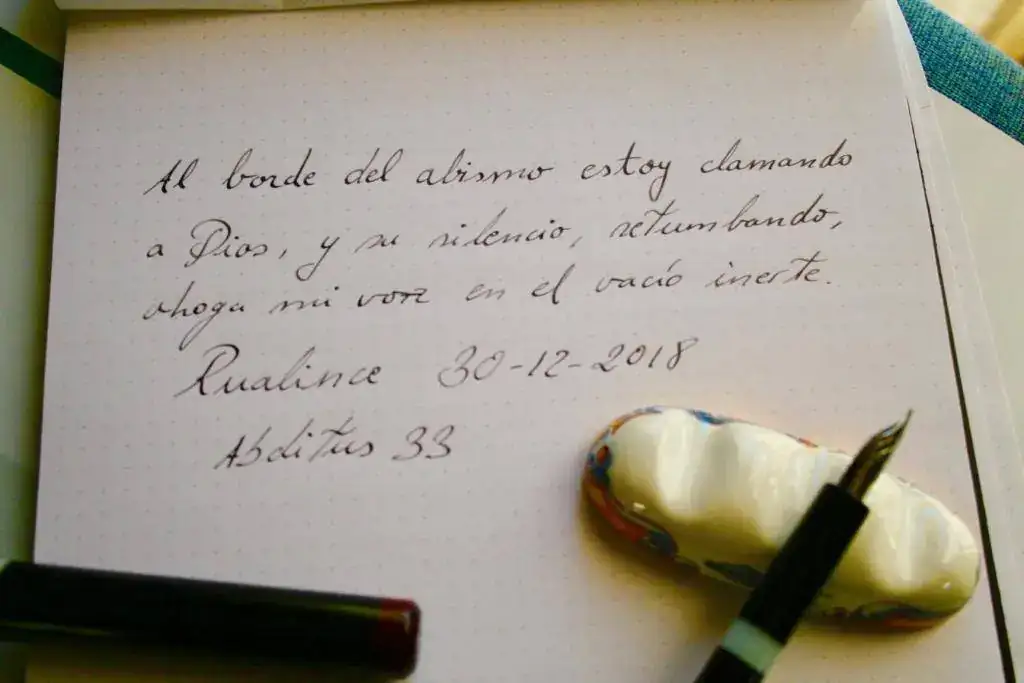 Al borde del abismo estoy clamando
a Dios, y su silencio, retumbando,
ahoga mi voz en el vacío inerte.
Rualince 30-12-2018
Abditus 33